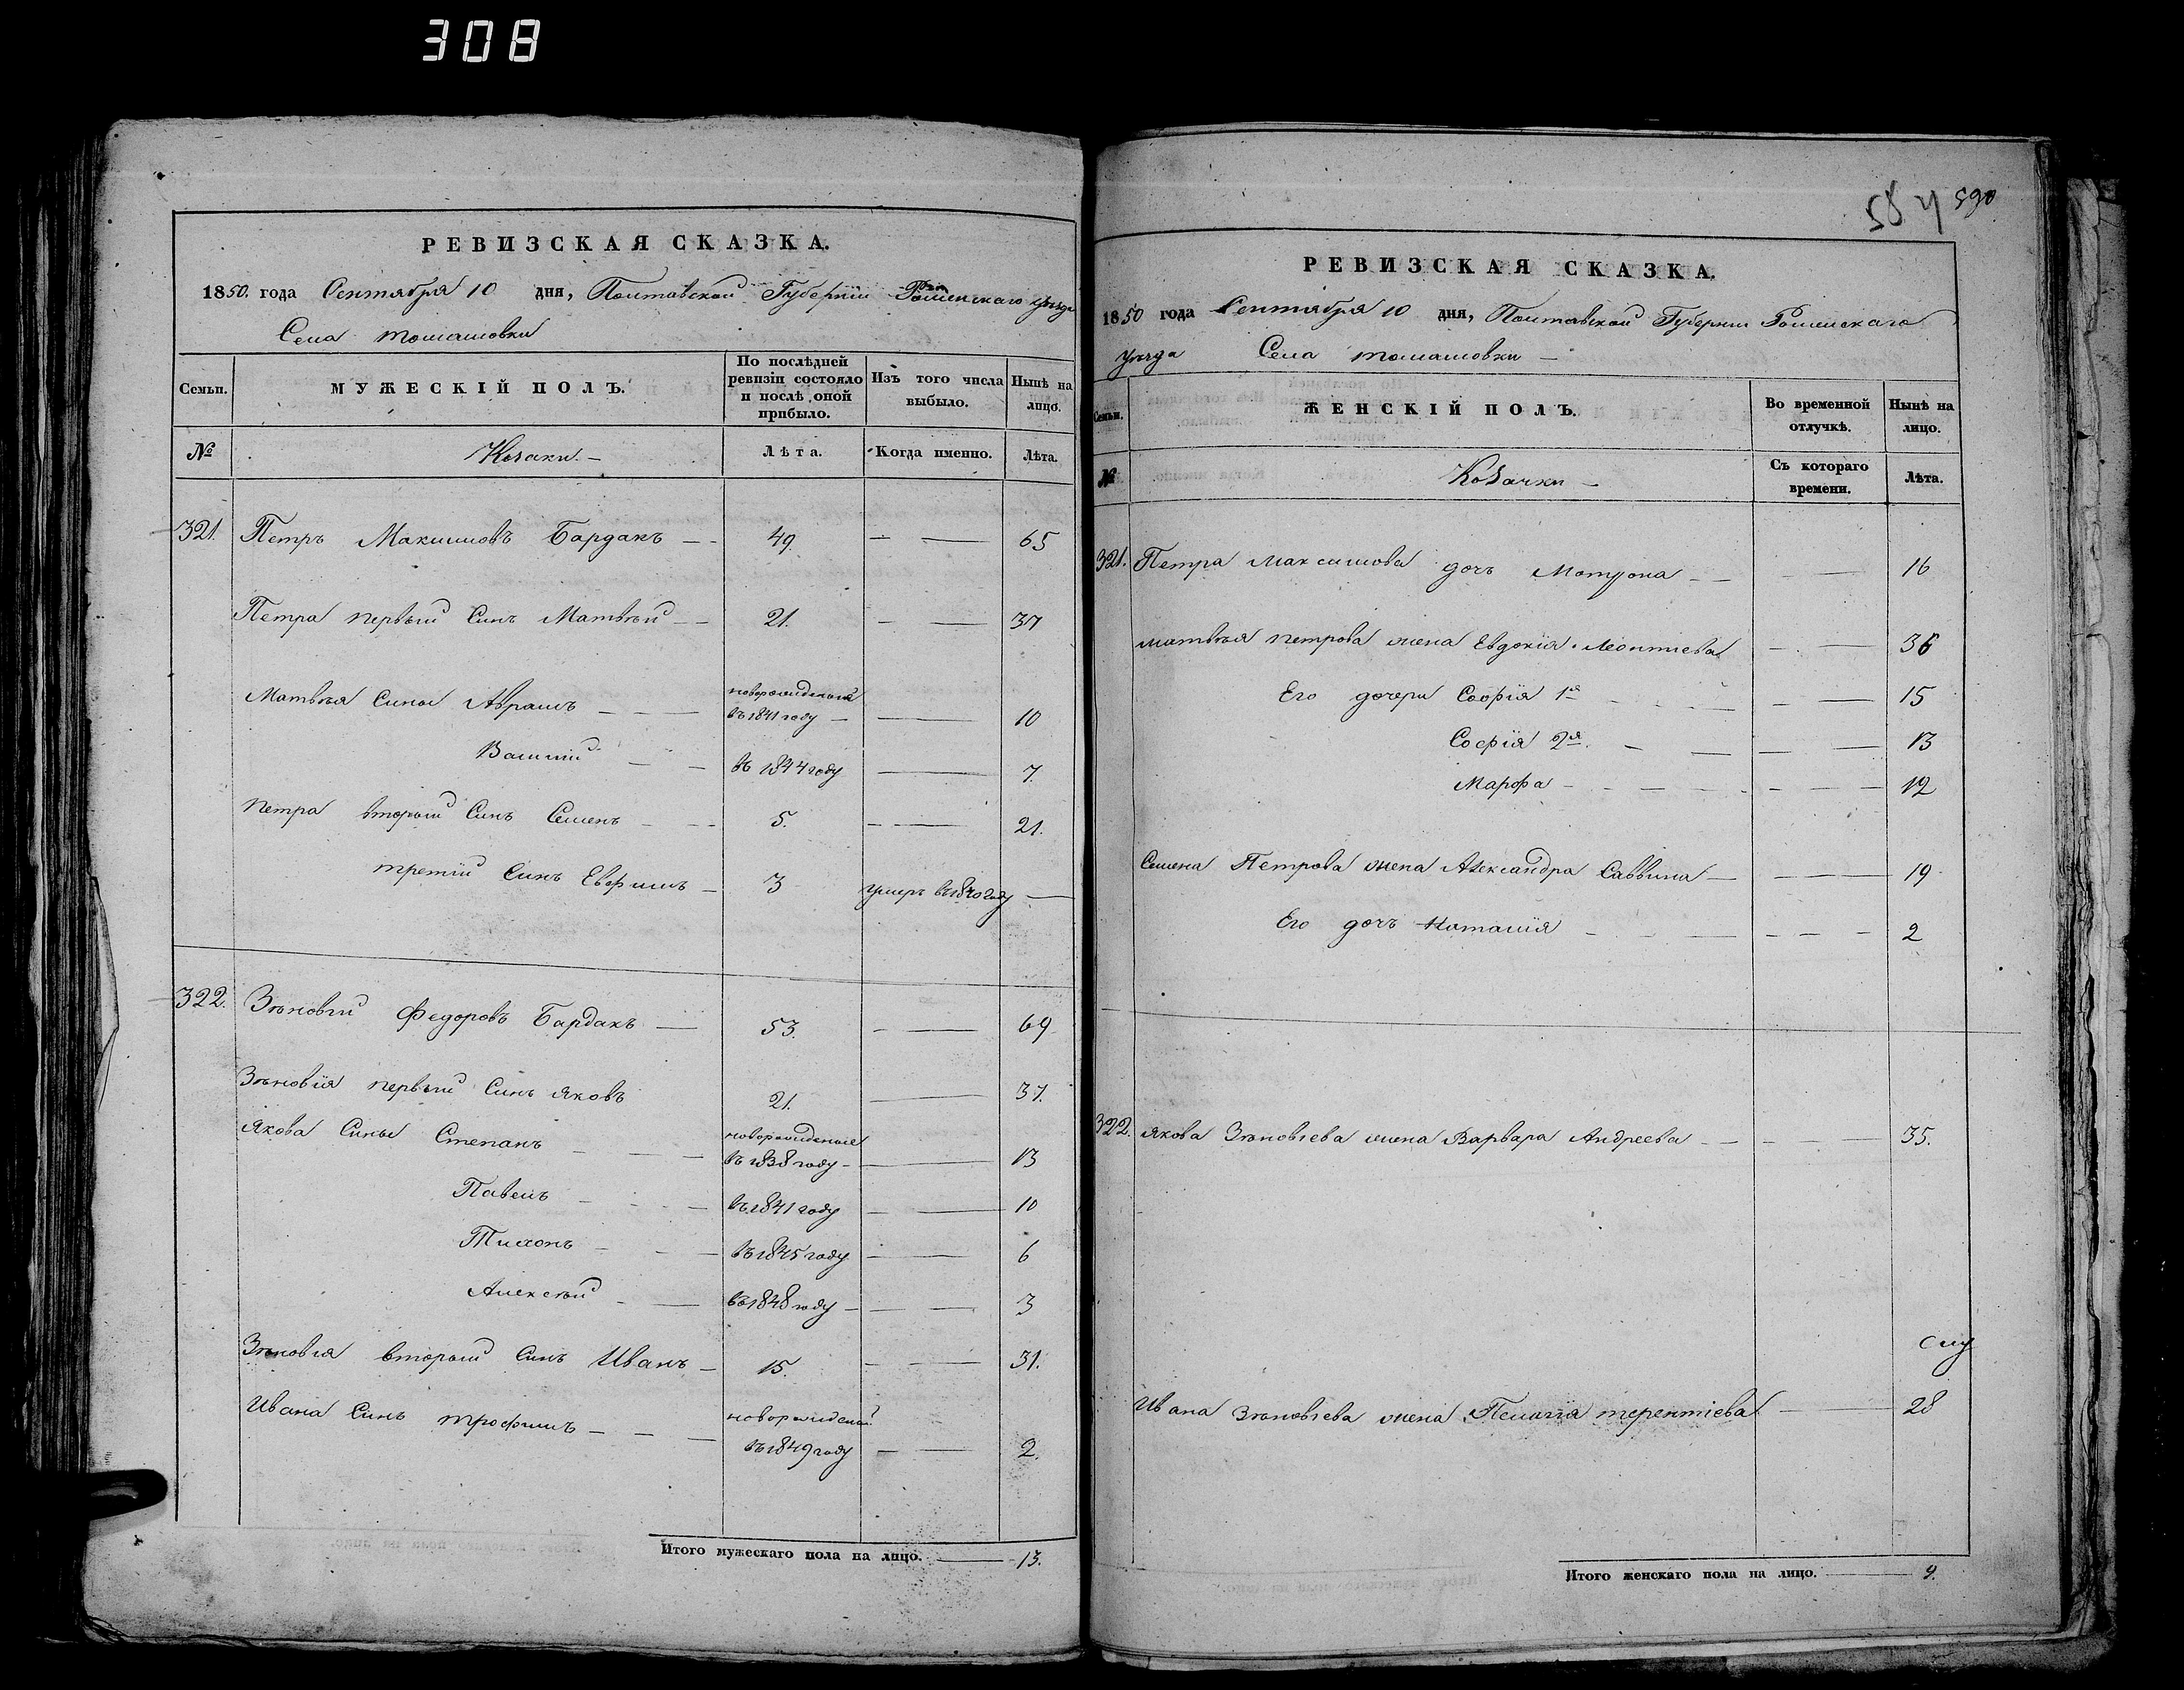 308
РЕВИЗСКАЯ СКАЗКА.
1850. года Сентября 10 дня, Полтавской Губернiи Роменскаго уезда
Села томашовки
Семьи.
МУЖЕСКІЙ ПОЛЪ.
По послѣдней ревизіи состояло и послѣ оной прибыло.
Изъ того числа выбыло.
Нынѣ на лицо.
№
Козаки. —
Лѣта.
Когда именно.
Лѣта.
321. Петръ Максимовъ Бардакъ — 49. — — 65
Петра первый Синъ Матвѣй — 21. — — 37
Матвѣя Сины Аврамъ — — — новорожденый въ 1841 году — — 10
Василій — — въ 1844 году — 7.
Петра вторый Синъ Семенъ — — 5. — — 21.
третій Синъ Евфимъ — 3 умеръ въ 1840 году —
322. Зѣновій Федоровъ Бардакъ — 53. — — 69
Зѣновія первый Синъ Яковъ 21. — 37.
Якова Сины Степанъ — — — новорожденые въ 1838 году — — 13
Павелъ — — — въ 1841 году — — 10
Тихонъ — — — въ 1845 году — — 6
Алексѣй — — въ 1848 году — — — 3
Зѣновія вторый Синъ Иванъ — 15. — — 31.
Ивана Синъ трофимъ — — — новорожденый въ 1849 году — — 2.
Итого мужескаго пола на лицо. — 13.
584 590
РЕВИЗСКАЯ СКАЗКА.
1850 года Сентября 10 дня, Полтавской Губерніи Роменскаго
уезда Села томашовки —
Семьи.
ЖЕНСКІЙ ПОЛЪ.
Во временной отлучкѣ.
Нынѣ на лицо.
№
Козачки —
Съ котораго времени.
Лѣта.
321. Петра Максимова дочь Мотрона — — — — 16
матвѣя петрова жена Евдокія Леонтіева — — 36
Его дочери Софія 1я — — 15
Софія 2я. — — — — 13
Марфа — — — — 12
Семена Петрова жена Александра Саввина — — — 19
Его дочъ Наталия — — — — — 2
322. Якова Зѣновіева жена Варвара Андреева — — — — 35.
Ивана Зѣновіева жена Пелагія терентіева — 28
Итого женскаго пола на лицо. — 9.